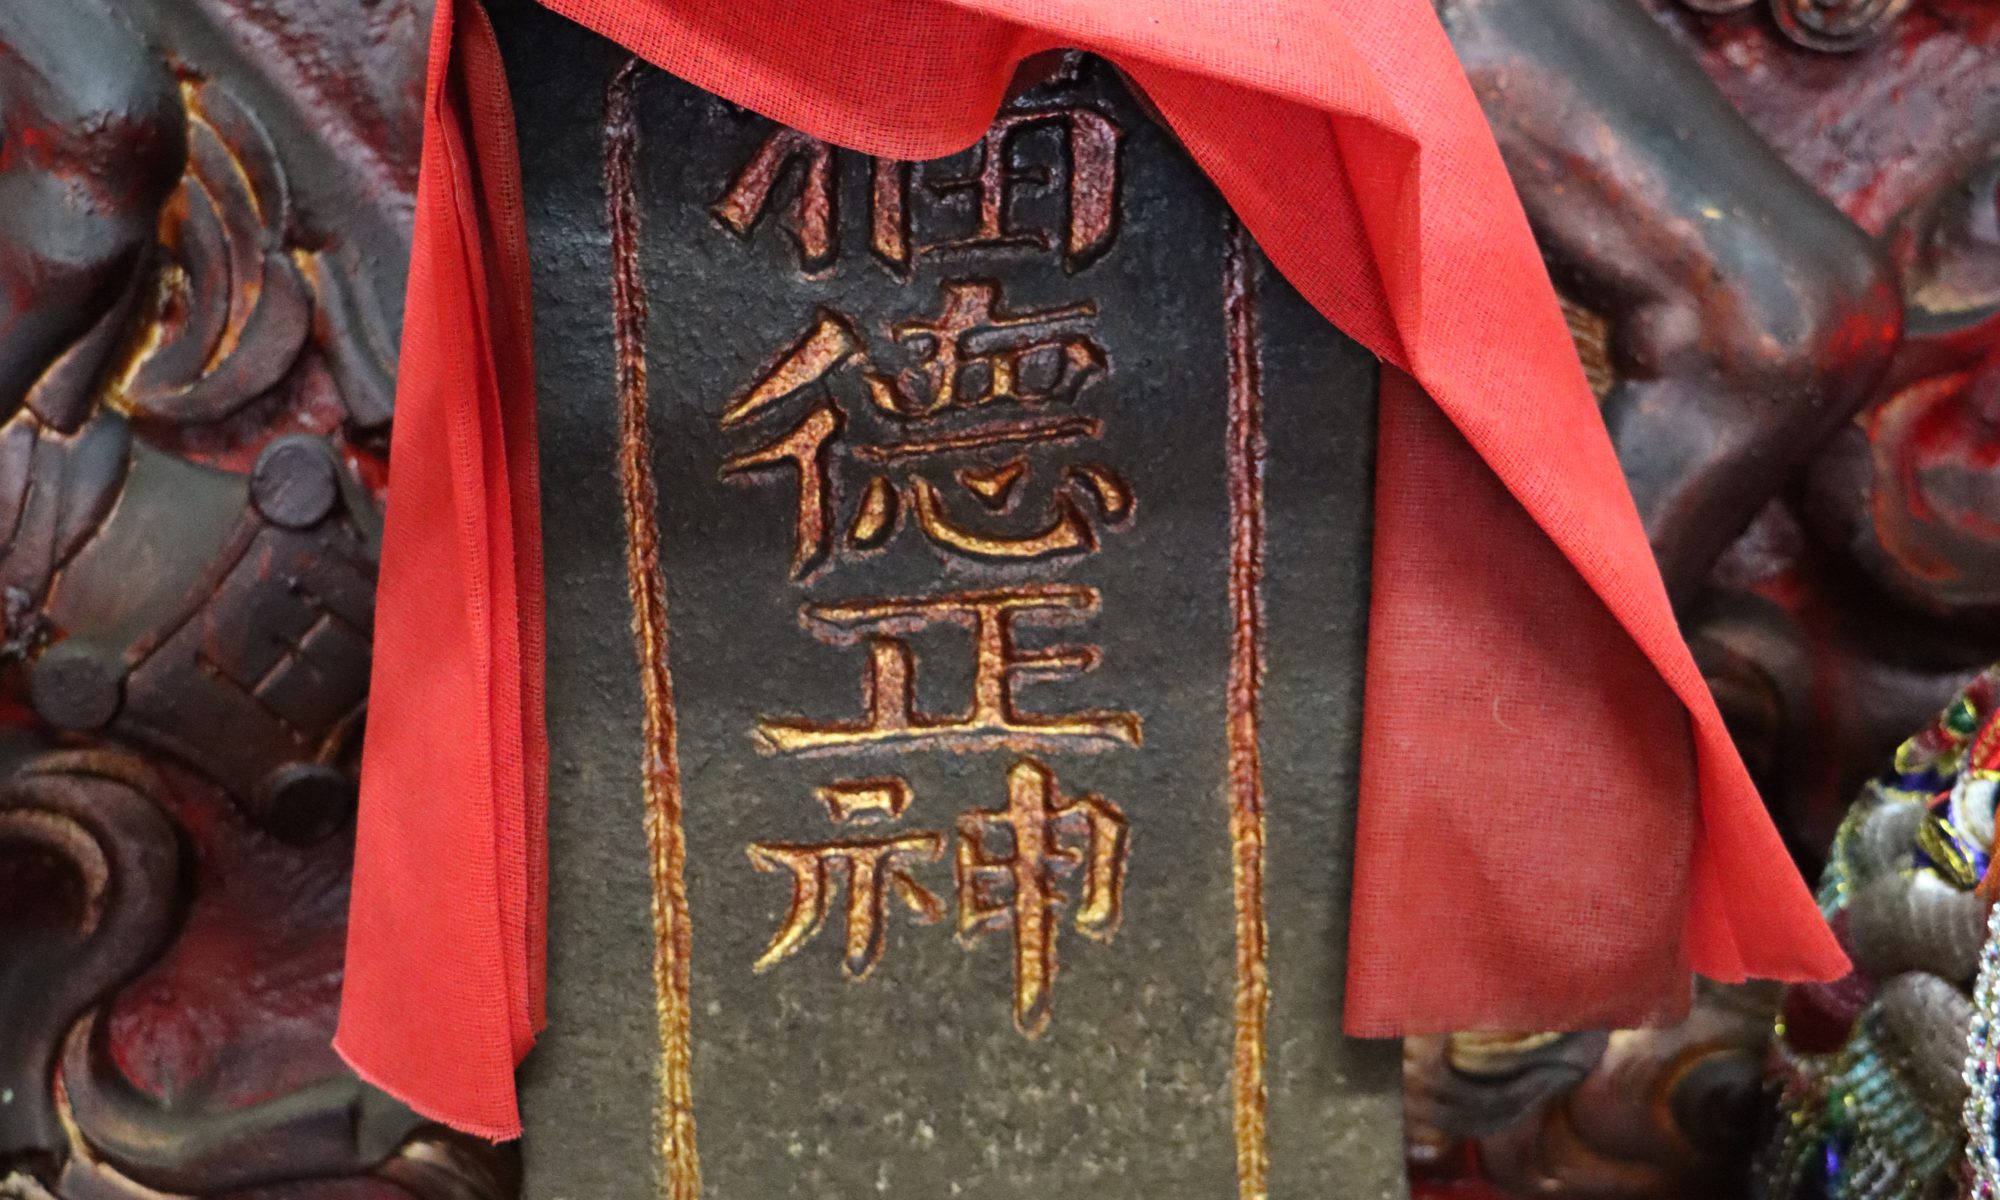 福德正神